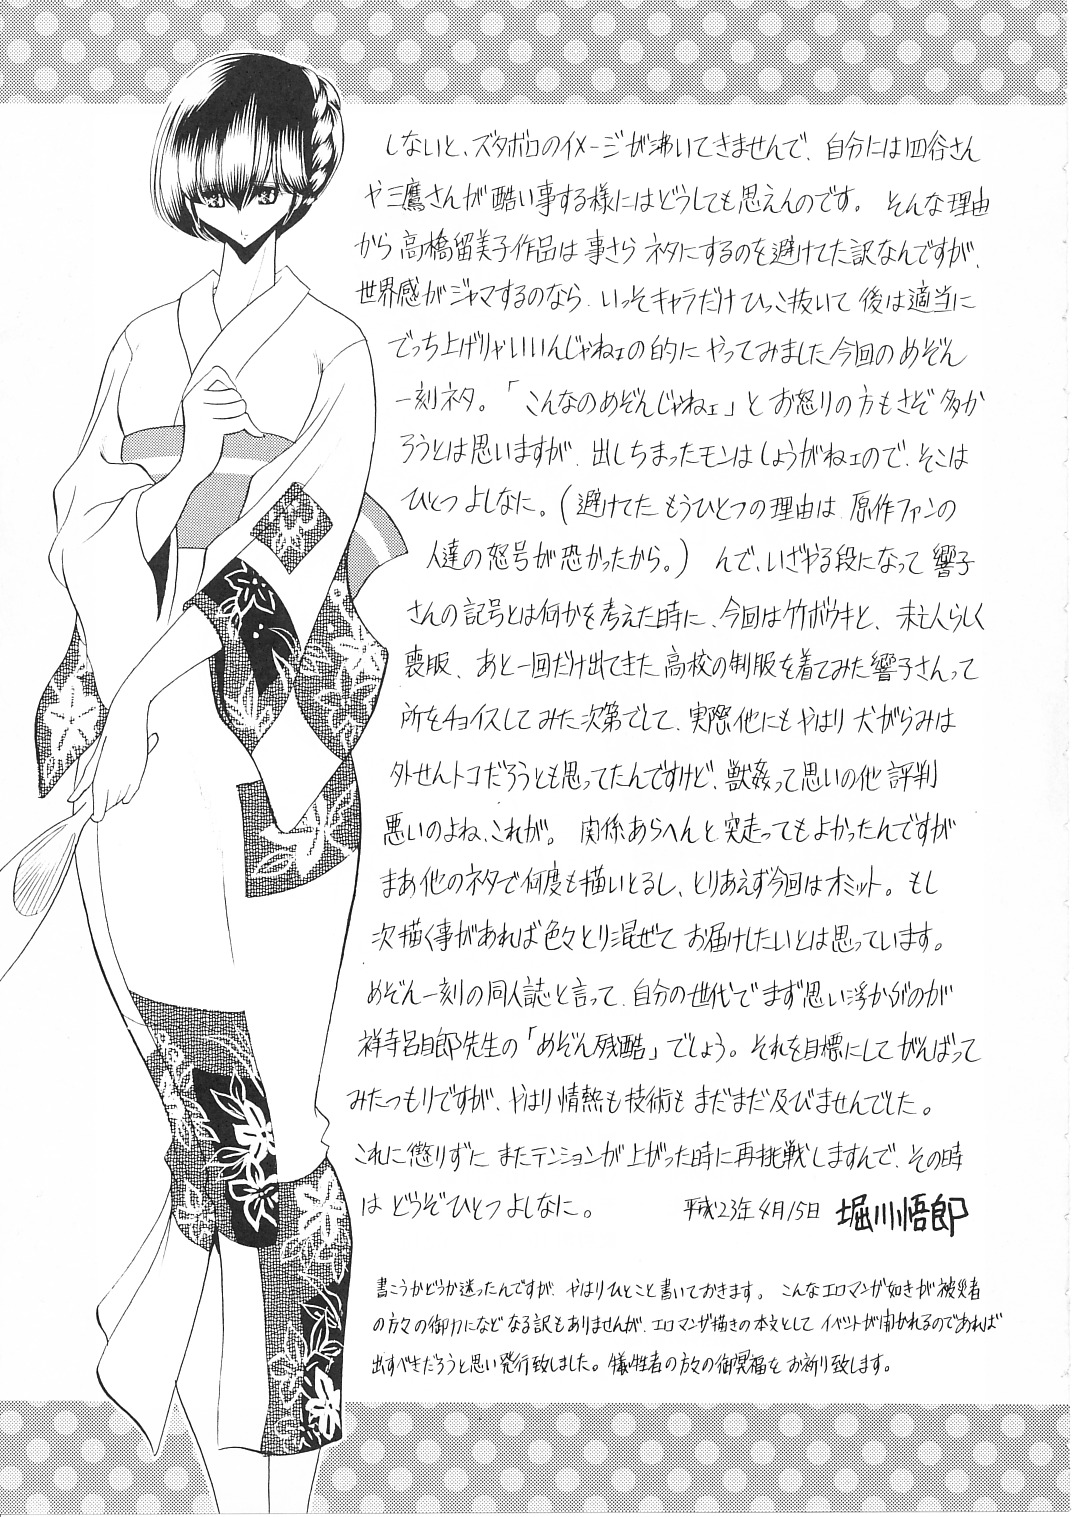 しないと、ズタボロのイメージが沸いてきませんで、自分には四谷さん
や三鷹さんが酷い事する様にはどうしても思えんのです。そんな理由
から高橋留美子作品は事さらネタにするのを避けてた訳なんですが、
世界感がジャマするのなら、いっそキャラだけひっこ抜いて後は適当に
でっち上げりゃいいんじゃねェの的にやってみました今回のめぞん
一刻ネタ。「こんなのめぞんじゃねェ」とお怒りの方もさぞ多か
ろうとは思いますが、出しちまったモンはしょうがねェので、そこは
ひとつよしなに。(避けてたもうひとつの理由は、原作ファンの
人達の怒号が恐かったから。)んで、いざやる段になって響子
さんの記号とは何かを考えた時に、今回は竹ボウキと、未亡人らしく
喪服、あと一回だけ出てきた高校の制服を着てみた響子さんって
所をチョイスしてみた次第でして、実際他にもやはり犬がらみは
外せんトコだろうとも思ってたんですけど、獣姦って思いの他評判
悪いのよね、これが。関係あらへんと突走ってもよかったんですが
まあ他のネタで何度も描いとるし、とりあえず今回はオミット。もし
次描く事があれば色々とり混ぜてお届けしたいとは思っています。
めぞん一刻の同人誌と言って、自分の世代でまず思い浮かぶのが
祥寺呂自郎先生の「めぞん残酷」でしょう。それを目標にしてがんばって
みたつもりですが、やはり情熱も技術もまだまだ及びませんでした。
これに懲りずにまたテンションが上がった時に再挑戦しますんで、その時
はどうぞひとつよしなに。 平成23年4月15日 堀川悟郎
書こうかどうか迷ったんですが、やはりひとこと書いておきます。こんなエロマンガ如きが被災者
の方々の御力になどなる訳もありませんが、エロマンガ描きの本文としてイベントが開かれるのであれば
出すべきだろうと思い発行致しました。犠牲者の方々の御冥福をお祈り致します。